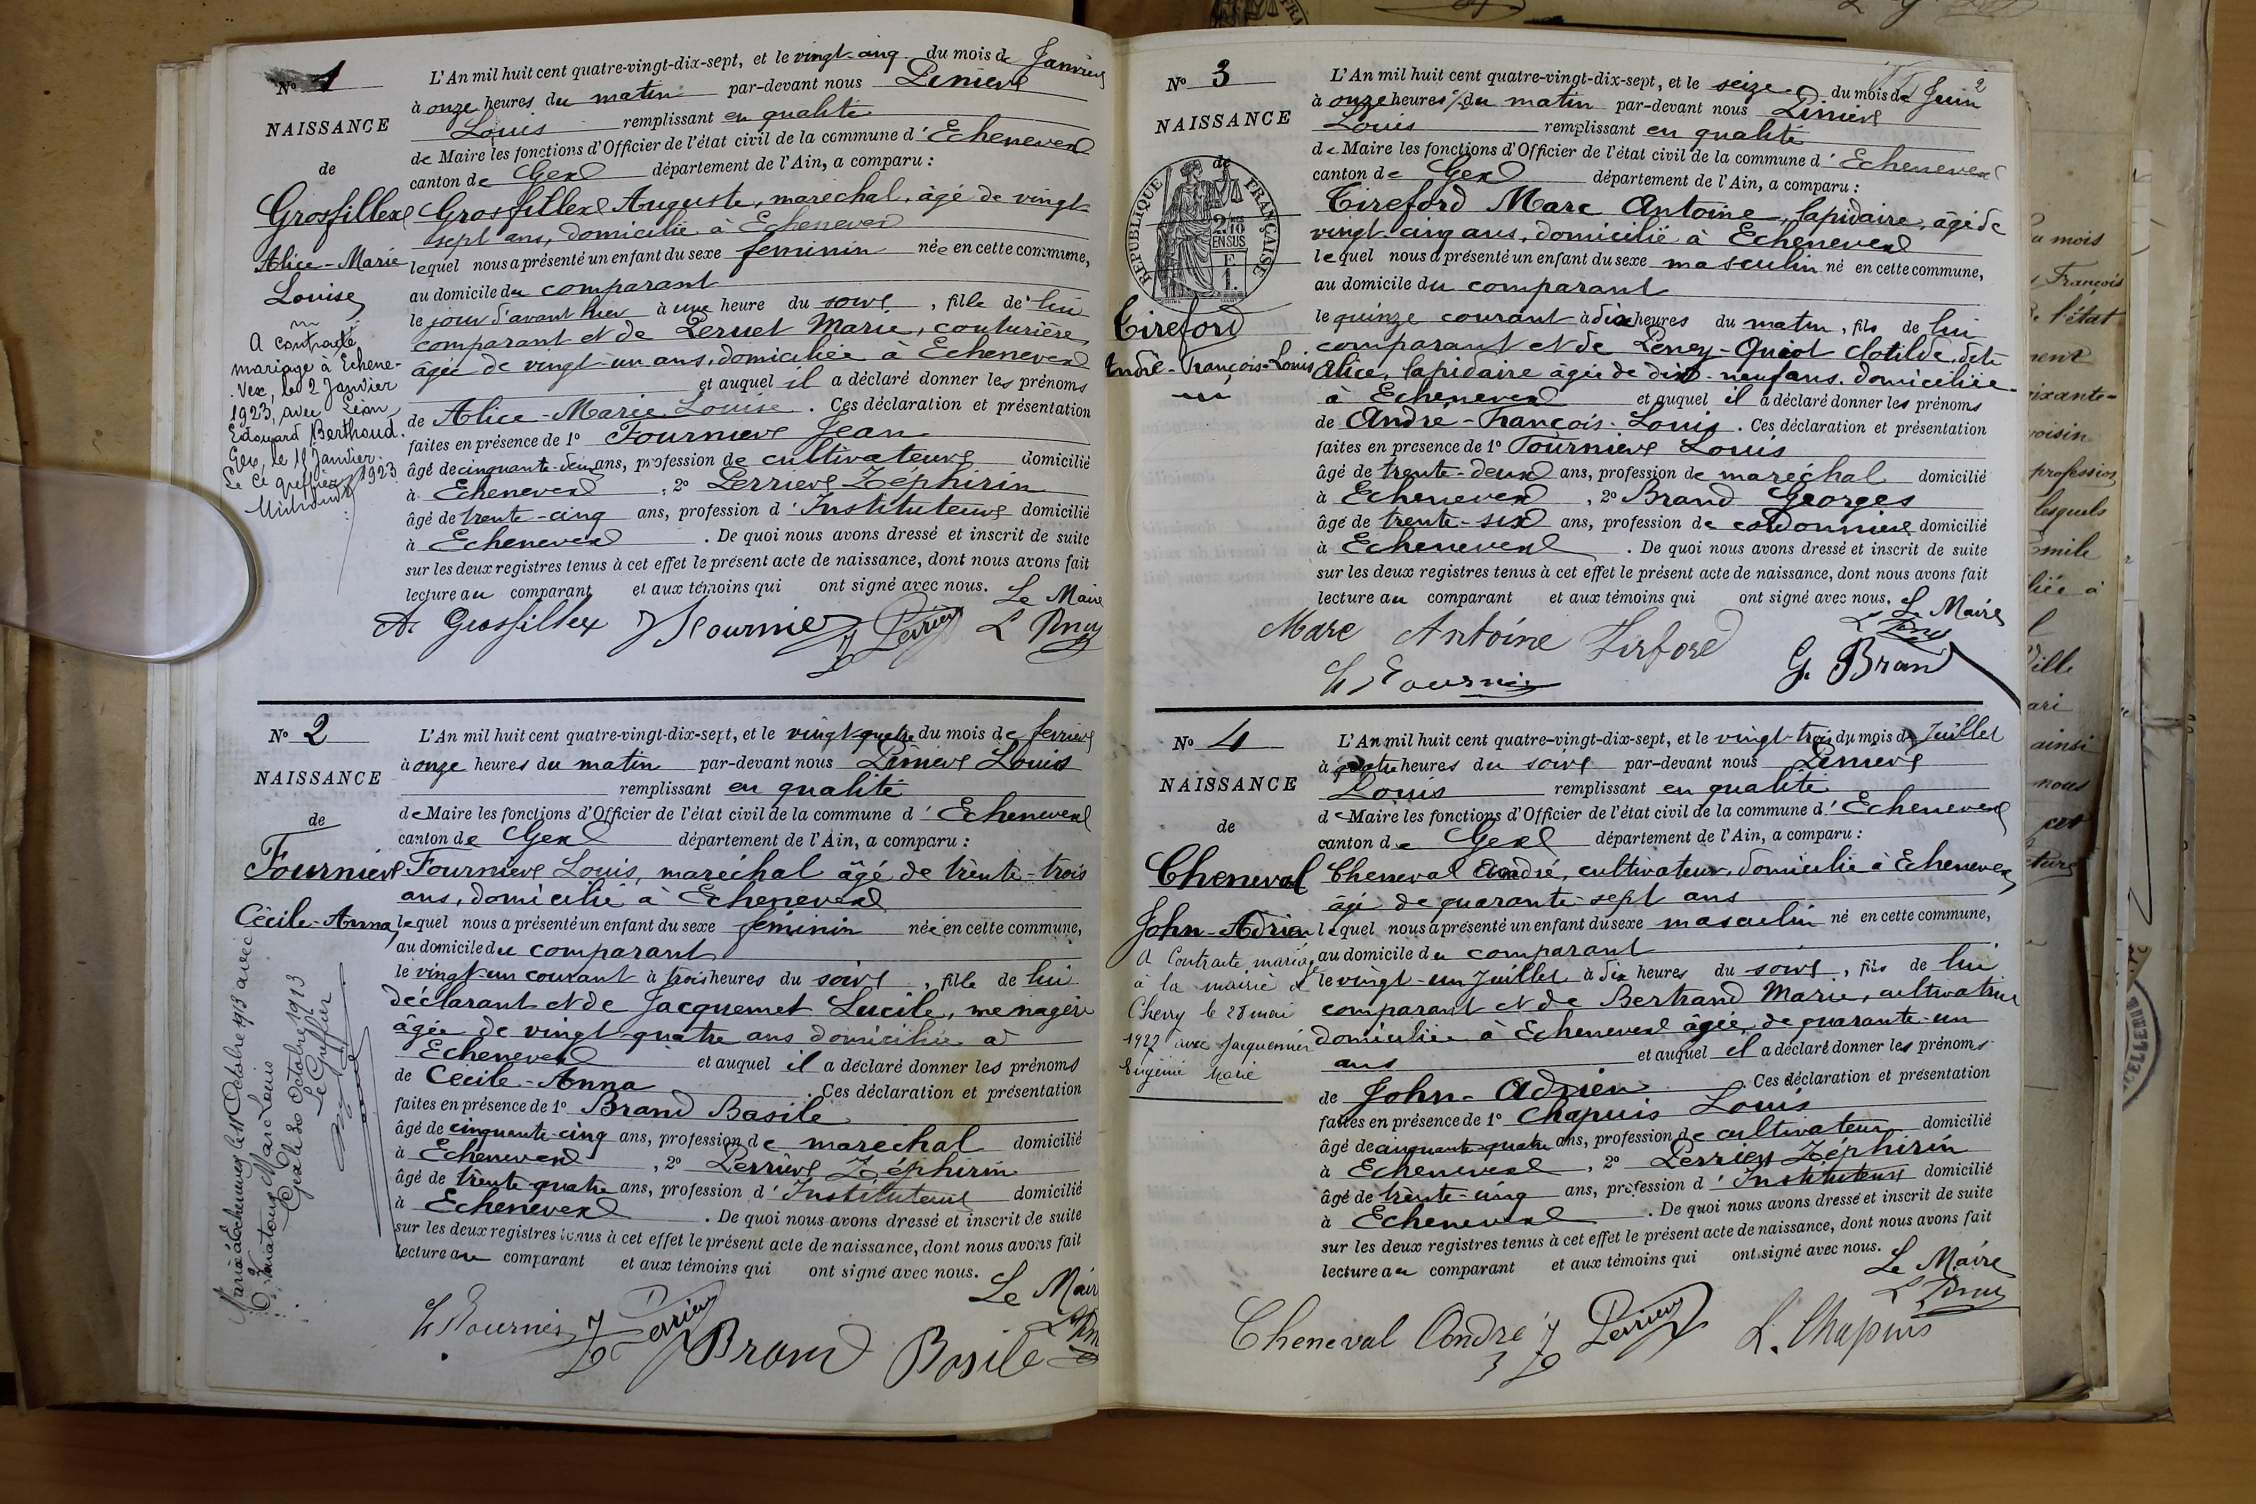 No 1
NAISSANCE
de
Grosfillex
Alice-Marie
Louise
A contracté
mariage à Echene-
vex, le 2 Janvier
1923, avec Léon
Edouard Berthoud.
Gex, le 11 Janvier
1923
L'An mil huit cent quatre-vingt-dix-sept, et le vingt-cinq du mois de Janvier
à onze heures du matin par-devant nous
Louis remplissant en qualité
de Maire les fonctions d'Officier de l'état civil de la commune d'Echenevex
canton de Gex département de l'Ain, a comparu :
Grosfillex Auguste, maréchal, âgé de vingt-
sept ans, domicilié à Echenevex
lequel nous a présenté un enfant du sexe feminin née en cette commune,
au domicile du comparant
le jour d'avant hier à une heure du soir, fille de lui
comparant et de Peruet Marie, couturière
âgée de vingt-un ans, domiciliée à Echenevex
et auquel il a déclaré donner les prénoms
de Alice-Marie Louise. Ces déclaration et présentation
faites en présence de 1o Fournier Jean
âgé de cinquante-deux ans, profession de cultivateur domicilié
à Echenevex, 2o Perrier Zéphirin
âgé de trente-cinq ans, profession d'Instituteur domicilié
à Echenevex. De quoi nous avons dressé et inscrit de suite
sur les deux registres tenus à cet effet le présent acte de naissance, dont nous avons fait
lecture au comparant et aux témoins qui ont signé avec nous. Le Maire
A Grosfillex J Fournier Z Perrier
No 2
NAISSANCE
de
Fournier
Cécile-Anna
Marc Louis
Gex le 20 Octobre 1913
Le Greffier
L'An mil huit cent quatre-vingt-dix-sept, et le vingt-quatre du mois de fevrier
à onze heures du matin par-devant nous Louis
remplissant en qualité
de Maire les fonctions d'Officier de l'état civil de la commune d'Echenevex
canton de Gex département de l'Ain, a comparu :
Fournier Louis, maréchal âgé de trente-trois
ans, domicilié à Echenevex
lequel nous a présenté un enfant du sexe féminin née en cette commune,
au domicile du comparant
le vingt-un courant à trois heures du soir, fille de lui
déclarant et de Jacquemet Lucile, menagère
âgée de vingt-quatre ans domiciliée à
Echenevex et auquel il a déclaré donner les prénoms
de Cécile-Anna. Ces déclaration et présentation
faites en présence de 1o Brand Basile
âgé de cinquante-cinq ans, profession de marechal domicilié
à Echenevex, 2o Perrier Zéphirin
âgé de trente-quatre ans, profession d'Instituteur domicilié
à Echenevex. De quoi nous avons dressé et inscrit de suite
sur les deux registres tenus à cet effet le présent acte de naissance, dont nous avons fait
lecture au comparant et aux témoins qui ont signé avec nous.
Le Maire
L Fournier Z Perrier Brand Basile
2
No 3
NAISSANCE
de
REPUBLIQUE FRANÇAISE
2/10
EN SUS
F
1.
Tireford
André-François-Louis
L'An mil huit cent quatre-vingt-dix-sept, et le seize du mois de Juin
à onze heures du matin par-devant nous
Louis remplissant en qualité
de Maire les fonctions d'Officier de l'état civil de la commune d'Echenevex
canton de Gex département de l'Ain, a comparu :
Tireford Marc Antoine, lapidaire, âgé de
vingt-cinq ans, domicilié à Echenevex
lequel nous a présenté un enfant du sexe masculin né en cette commune,
au domicile du comparant
le quinze courant à dix heures du matin, fils de lui
comparant et de Peney-Quiot Clotilde, dite
Alice, lapidaire âgée de dix-neuf ans. domiciliée
à Echenevex et auquel il a déclaré donner les prénoms
de André-François-Louis. Ces déclaration et présentation
faites en présence de 1o Fournier Louis
âgé de trente-deux ans, profession de maréchal domicilié
à Echenevex, 2o Brand Georges
âgé de trente-six ans, profession de cordonnier domicilié
à Echenevex. De quoi nous avons dressé et inscrit de suite
sur les deux registres tenus à cet effet le présent acte de naissance, dont nous avons fait
lecture au comparant et aux témoins qui ont signé avec nous. Le Maire
Marc Antoine Tirford
L Fournier G. Brand
No 4
NAISSANCE
de
Cheneval
John-Adrien
A Contracté mariage
à la mairie de
Chevry le 28 mai
1927 avec Jacquemier
Eugénie Marie
L'An mil huit cent quatre-vingt-dix-sept, et le vingt-trois du mois de Juillet
à quatre heures du soir par-devant nous
Louis remplissant en qualité
de Maire les fonctions d'Officier de l'état civil de la commune d'Echenevex
canton de Gex département de l'Ain, a comparu :
Cheneval André, cultivateur, domicilié à Echenevex
âgé de quarante-sept ans
lequel nous a présenté un enfant du sexe masculin né en cette commune,
au domicile du comparant
le vingt-un Juillet à dix heures du soir, fils de lui
comparant et de Bertrand Marie, cultivatrice
domiciliée à Echenevex âgée de quarante-un
ans et auquel il a déclaré donner les prénoms
de John-Adrien. Ces déclaration et présentation
faites en présence de 1o Chapuis Louis
âgé de cinquante-quatre ans, profession de cultivateur domicilié
à Echenevex, 2o Perrier Zéphirin
âgé de trente-cinq ans, profession d'Instituteur domicilié
à Echenevex. De quoi nous avons dressé et inscrit de suite
sur les deux registres tenus à cet effet le présent acte de naissance, dont nous avons fait
lecture au comparant et aux témoins qui ont signé avec nous.
Le Maire
Cheneval André Z Perrier L. Chapuis
mois
François
l'état
voisin
profession
lesquels
à
ainsi
nous